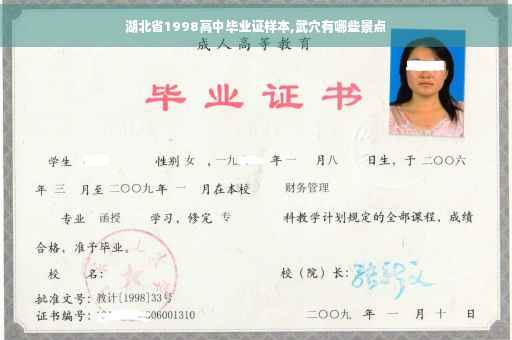 湖北省1998高中毕业证样本,武穴有哪些景点
成人高等教育
毕业证书
学生 性别 女 ,一九 年一 月八 日生，于二〇〇六
年 三 月至二〇〇九年 一 月在本校 财务管理
专业 函授 学习，修完 专 科教学计划规定的全部课程，成绩
合格，准予毕业。
校 名： 校（院）长：
批准文号：教计[1998]33号
证书编号： 006001310 二〇〇九 年 一 月 十 日